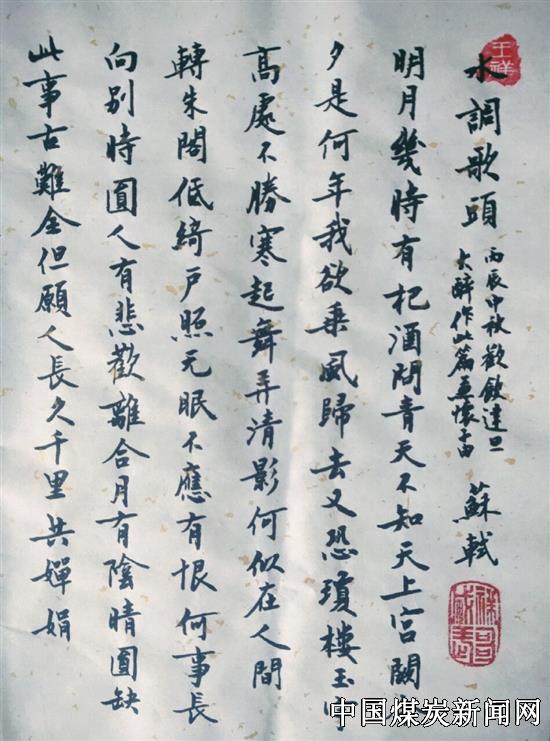 王祥
水調歌頭
丙辰中秋歡飲達旦
大醉作此篇兼懷子由
蘇軾
明月幾時有把酒問青天不知天上宮闕今
夕是何年我欲乘風歸去又恐瓊樓玉宇
高處不勝寒起舞弄清影何似在人間
轉朱閣低綺戶照无眠不應有恨何事長
向别時圓人有悲歡離合月有陰晴圓缺
此事古難全但願人長久千里共嬋娟
中国煤炭新闻网